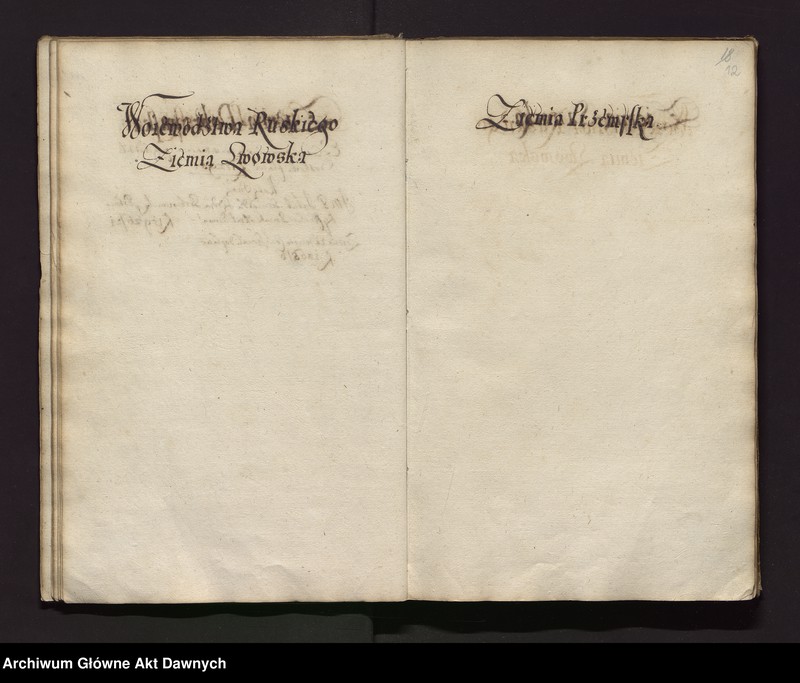 Woiewodztwa Ruskiego
Ziemia Lwowska
Ziemia Przemyska
18
12
Archiwum Główne Akt Dawnych